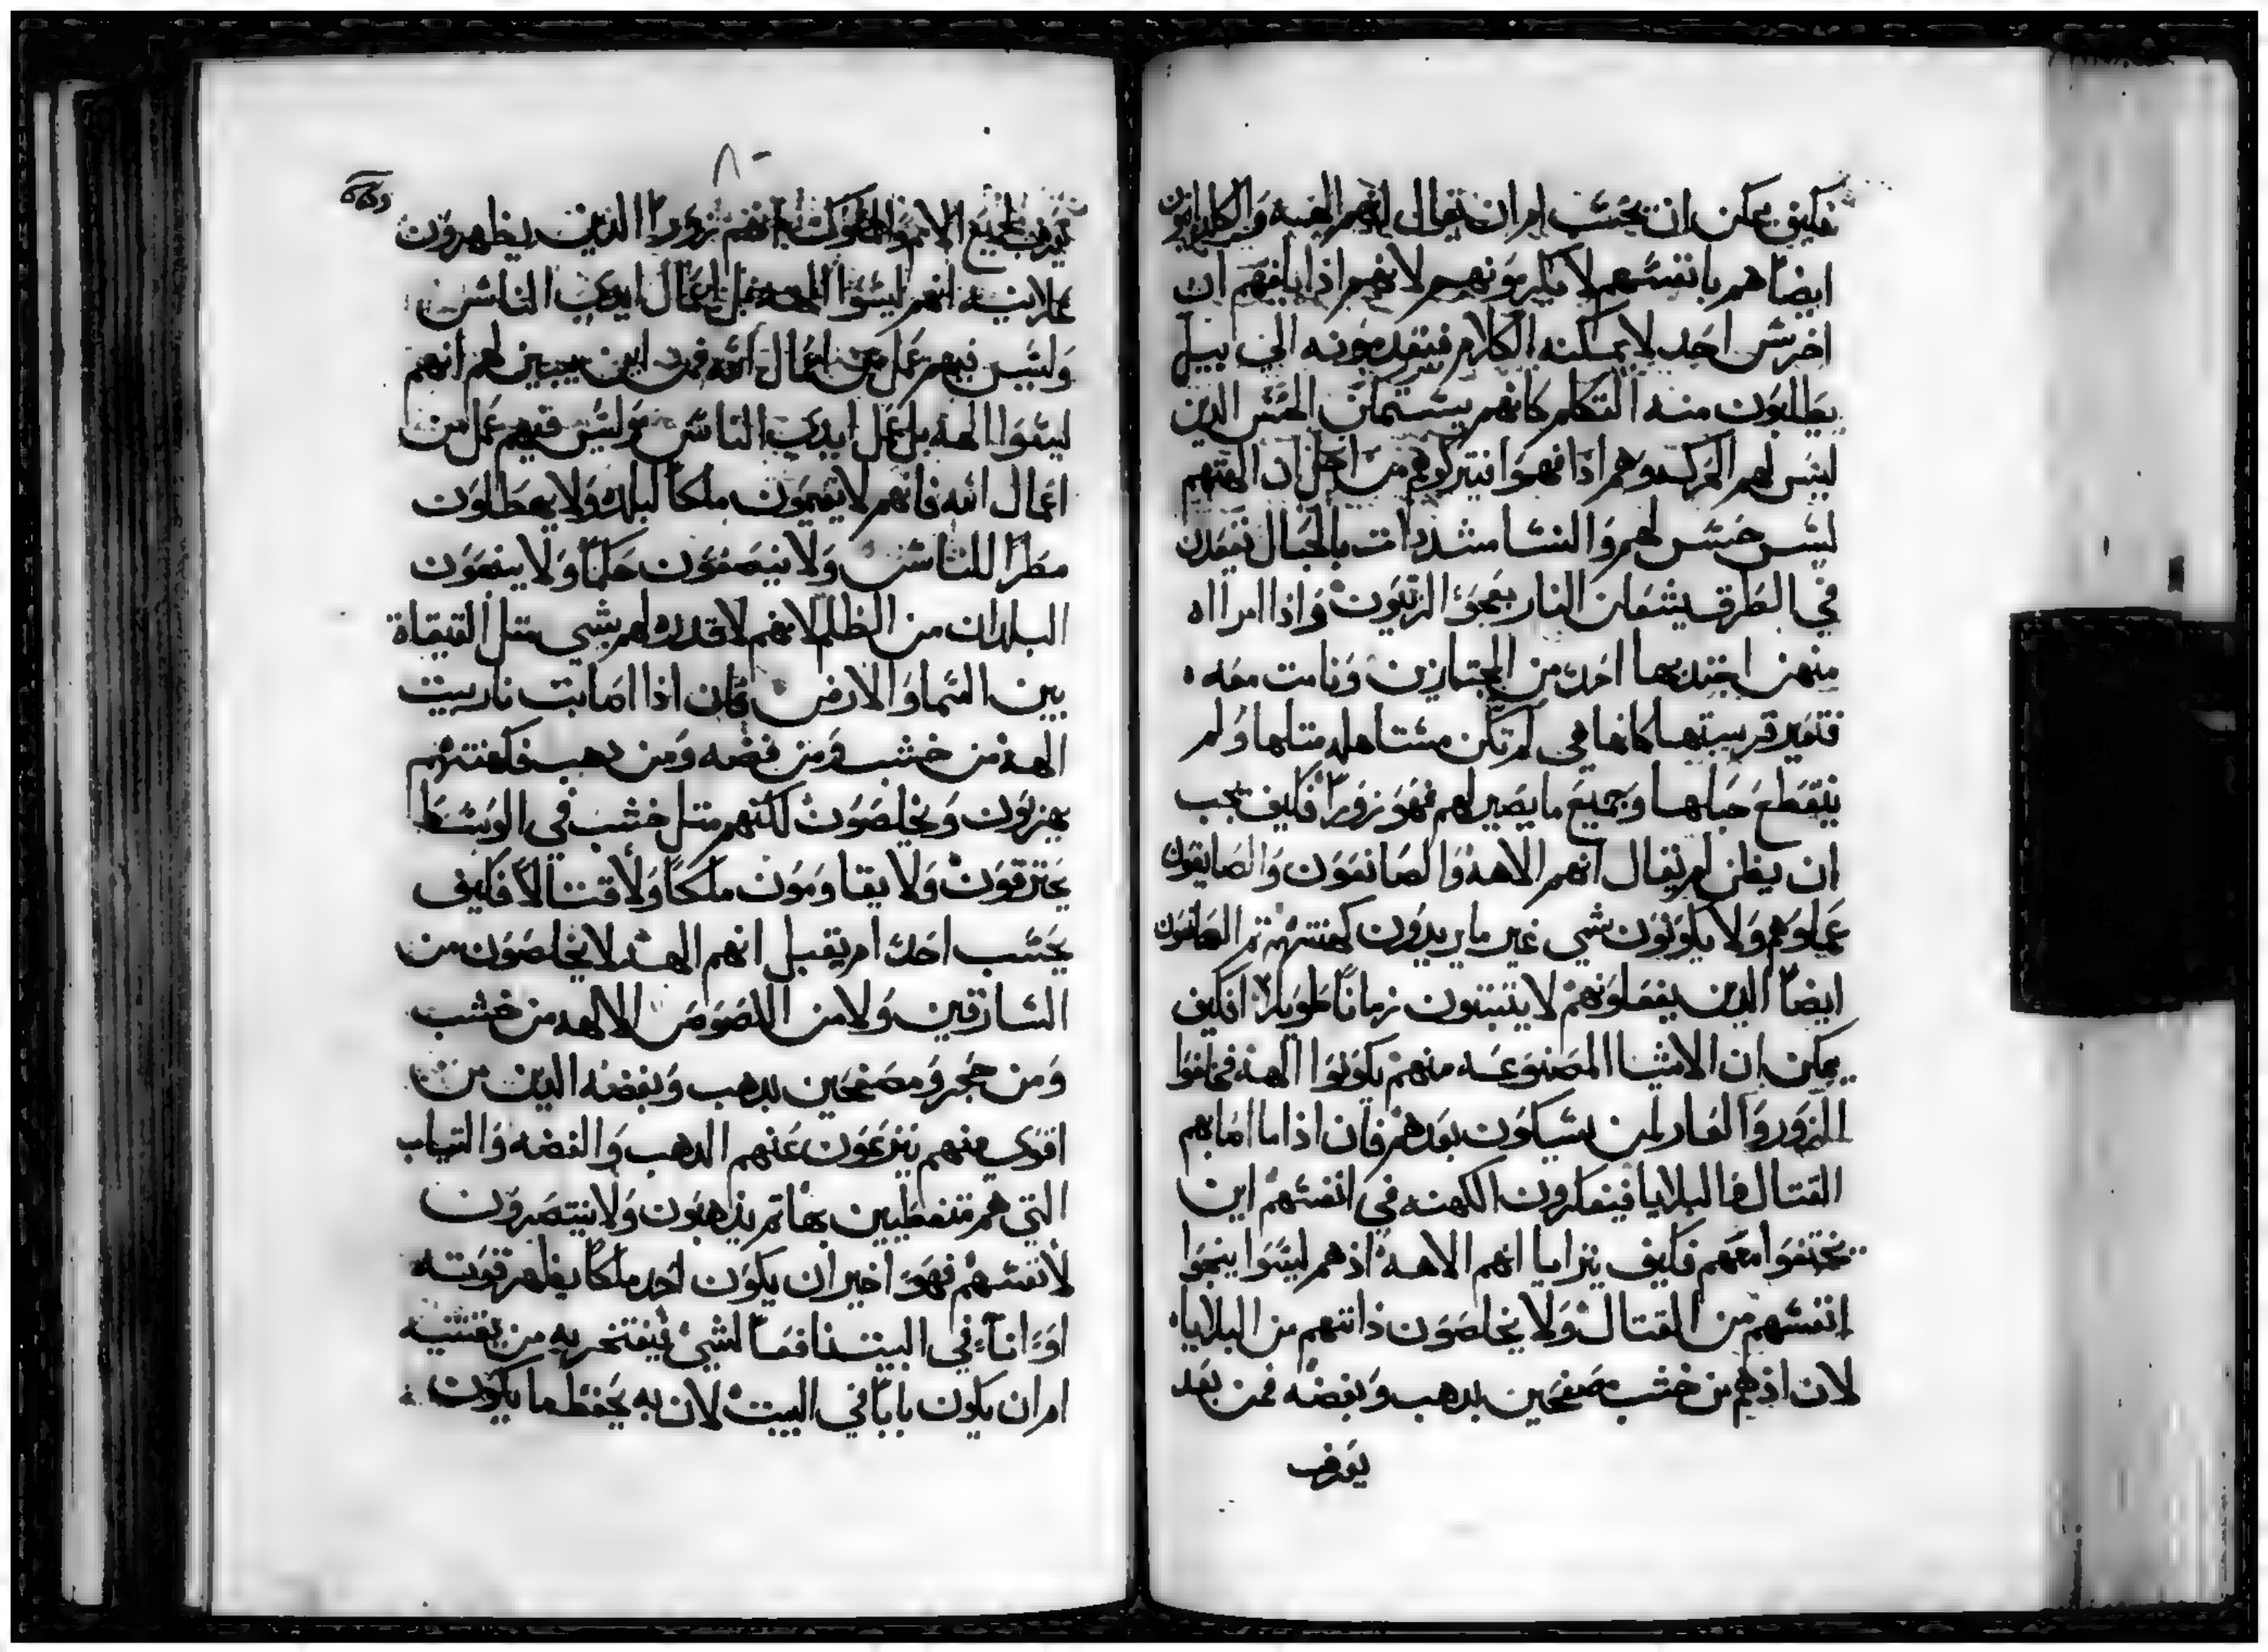 فكيف يمكن ان يحتسب ام ان يقال انهم الهه والكلدانيون
ايضًا هم بانفسهم لا يكرمونهم لانهم اذا بلغهم ان
اخرس احد لا يمكنه الكلام فيقدمونه الي بيل
يطلبون منه التكلم كانهم يستحملن الحس الدين
ليس لهم الحركه وهم اذا فهموا فيتركوهم من اجل ان الهتهم
ليس حس لهم والنسا مشددات بالحبال تقعدن
في الطرق يشعلن النار بعجو الزيتون واذا امراه
منهن اجتدبها احد من المجتازين ونامت معه
فتعير قريبتها كانها هي لم تكن مستاهله متلها ولم
ينقطع حبلها وجميع ما يصير لهم فهو زورًا فكيف يجب
ان يظن ام يقال انهم الاهه والصانعون والصايغون
عملوهم ولا يكونون شي غير ما يريدون كهنتهم تم الصايغون
ايضًا الدين يفعلونهم لا يتبتون زمانًا طويلاً افكيف
يمكن ان الاشيا المصنوعه منهم يكونوا الهه فخلفوا
الزور والعار لمن سيكون بعدهم فان اذا ما اصابهم
القتال والبلايا فيفكرون الكهنه في انفسهم اين
يختفوا معهم فكيف يتراما انهم الاهه اذ هم ليسوا ينجوا
انفسهم من القتال ولا يخلصون ذاتهم من البلايا
لان اذ هم من خشب مصفحين بدهب وبفضه فمن بعد
يعرف
٨٠
يعرف لجميع الامم والملوك بانهم زورًا الذين يظهرون
علانيه انهم ليسوا الهه بل اعمال ايدي الناس
وليس فيهم عمل من اعمال الله فمن اين يبين لهم انهم
ليسوا الهه بل عمل ايدي الناس وليس فيهم عمل من
اعمال الله فانهم لا يقيمون ملكًا لبلده ولا يعطون
مطرًا للناس ولا ينصفون حكمًا ولا ينقدون
البلدان من الظلم لانهم لا قدره لهم بشي متل القيقاة
بين السما والارض فان اذا اصابت نار بيت
الهه من خشب ومن فضه ومن دهب فكهنتهم
يهربون ويخلصون لكنهم متل خشب في الوسط
يحترقون ولا يقاومون ملكًا ولا قتالاً فكيف
يحتسب احد ام يقبل انهم الهه لا يخلصون من
السارقين ولا من اللصوص الالهه من خشب
ومن حجر ومصفحين بدهب وبفضه الدين من
اقوي منهم ينزعون عنهم الدهب والفضه والتياب
التي هم متغطيين بها تم يذهبون ولا ينتصرون
لانفسهم فهو اخير ان يكون احد ملكًا يظهر قوته
او اناء في البيت نافعًا لشي يفتخر به من يقتنيه
ام ان يكون بابًا في البيت لان به يحفظ ما يكون